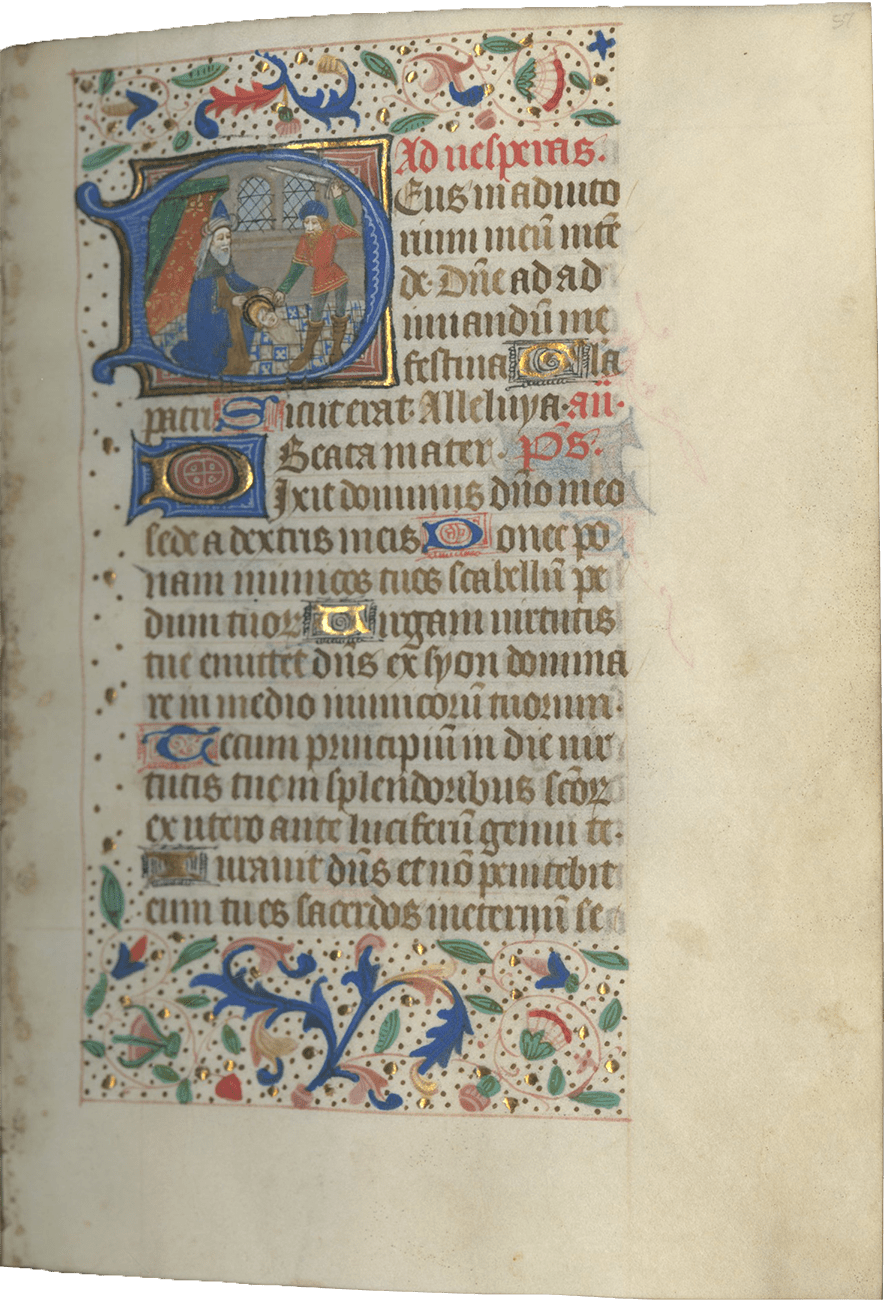 57
Ad uesperas.
Eus in adiuto
rium meū intē
de. Dn̄e ad ad
iuuandū me
festina Gl̄a
patri Sicut erat. Alleluya. añ.
Beata mater. p̄s.
Dixit dominus dn̄o meo
sede a dextris meis Donec po
nam inimicos tuos scabellū pe
dum tuoꝝ Uirgam uirtutis
tue emittet dn̄s ex syon domina
re in medio inimicorū tuorum.
Tecum principiū in die uir
tutis tue in splendoribus scōꝝ
ex utero ante luciferū genui te.
Iurauit dn̄s et nō penitebit
eum tu es sacerdos ineternū se